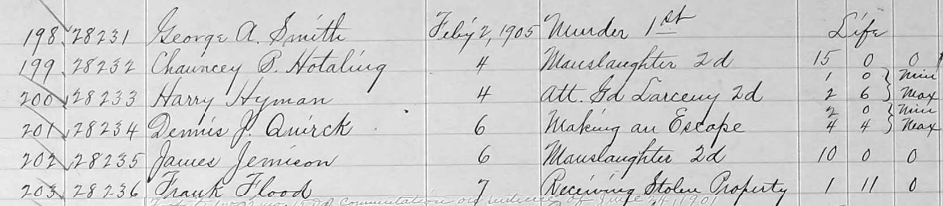 198 28231 George A. Smith Feb'y 2, 1905 Murder 1st Life
199 28232 Chauncey P. Hotaling 4 Manslaughter 2d 15 0 0
1 0 } Min
200 28233 Harry Hyman 4 Att. Gd Larceny 2d 2 6 } Max
2 0 } Min
201 28234 Dennis J. Quirck 6 Making an Escape 4 4 } Max
202 28235 James Jemison 6 Manslaughter 2d 10 0 0
203 28236 Frank Flood 7 Receiving Stolen Property 1 11 0
commutation on sentence of June 24, 1901